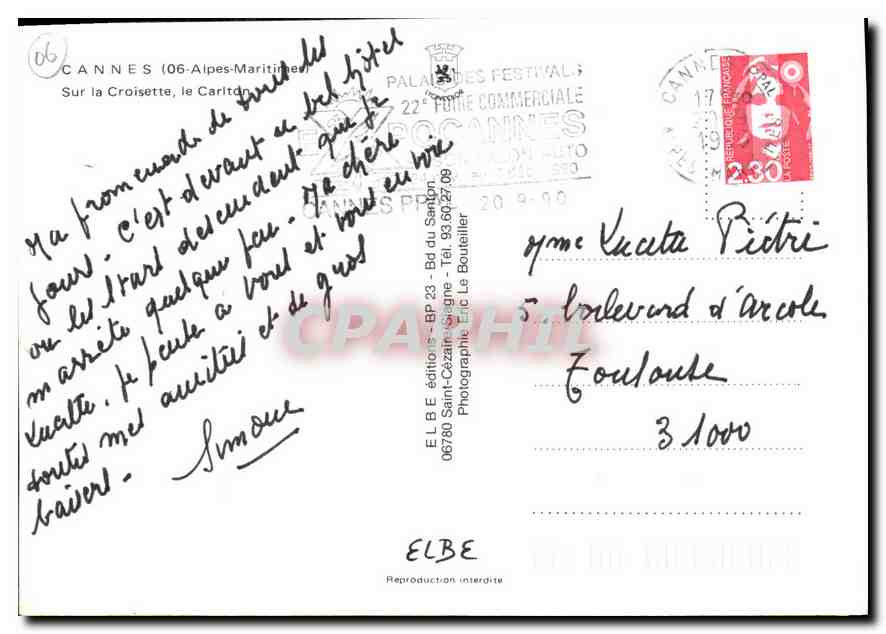 06
CANNES (06-Alpes-Maritimes)
Sur la Croisette, le Carlton
Ma promenade de tous les
jours. C'est devant ce bel hôtel
ou les stars descendent que je
m'arrête quelque peu. Ma chère
Lucette, je pense à vous et vous envoie
toutes mes amitiés et de gros
baisers.
Simone
PALAIS DES FESTIVALS
22e FOIRE COMMERCIALE
CANNES PPAL 20-9-90
RÉPUBLIQUE FRANÇAISE
2,30
LA POSTE
ELBE éditions - BP 23 - Bd du Santon
06780 Saint-Cézaire/Siagne - Tél. 93.60.27.09
Photographie Eric Le Bouteiller
Mme Lucette Piétri
5 boulevard d'Arcole
Toulouse
31000
CPAPHIL
ELBE
Reproduction interdite